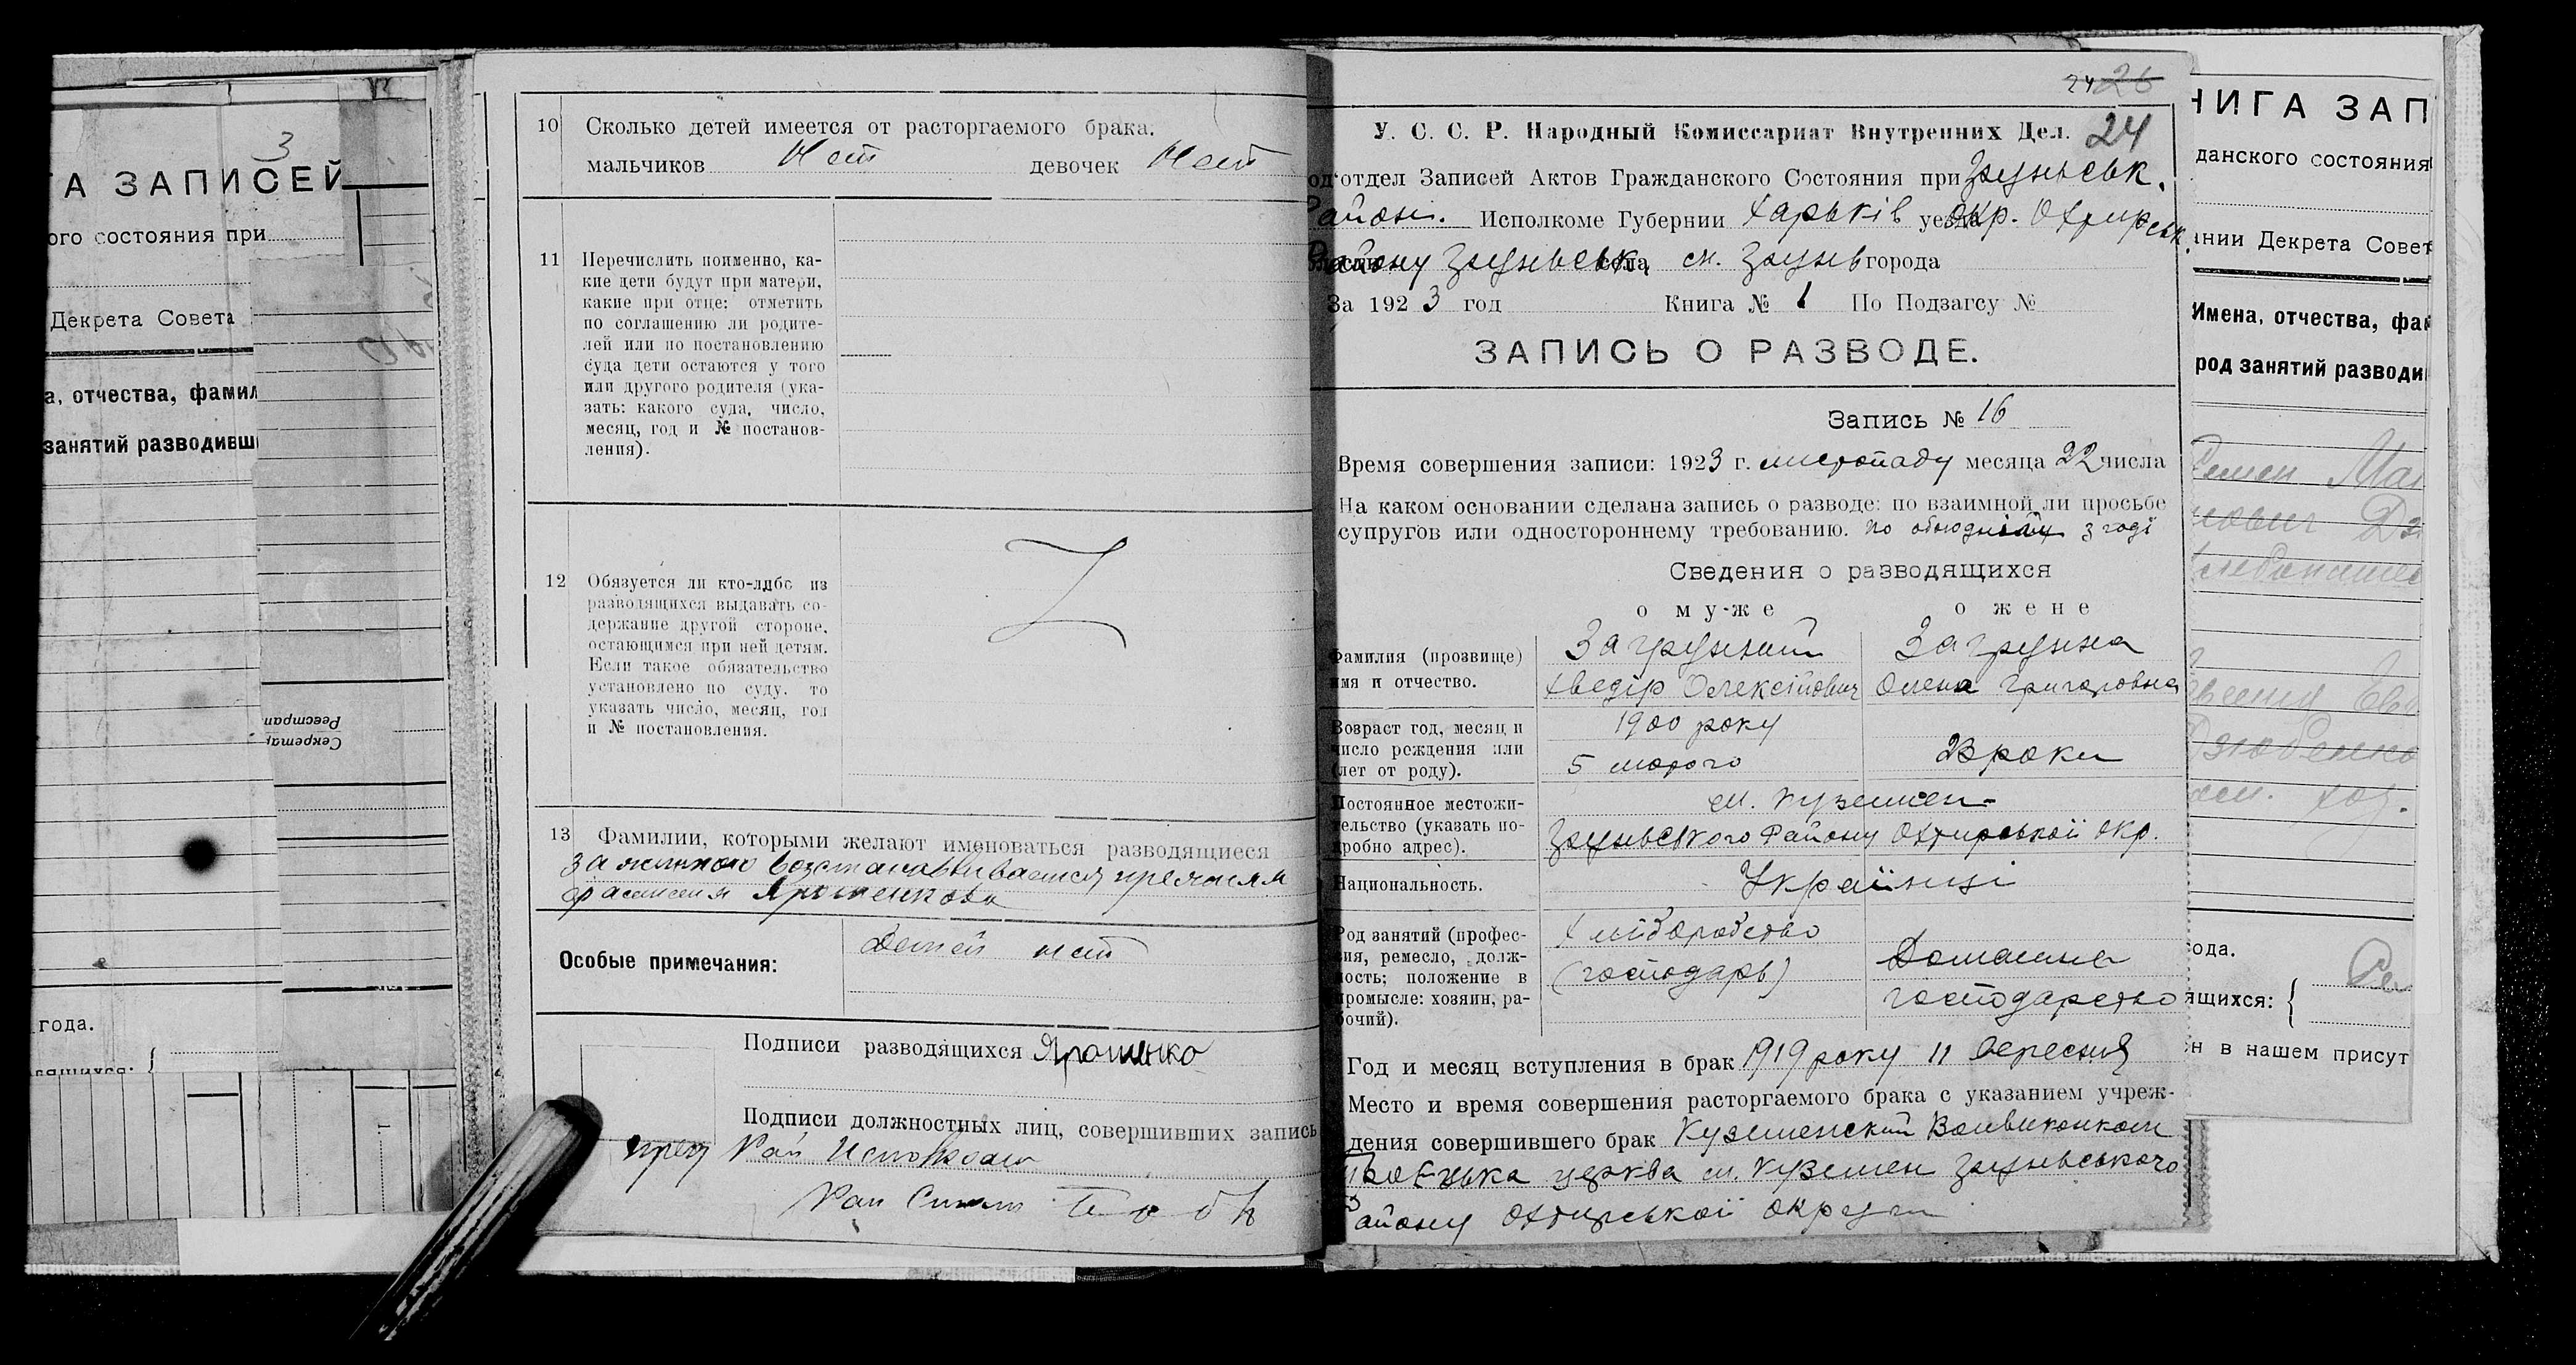 3
ГА ЗАПИСЕЙ
ого состояния при
Декрета Совета
а, отчества, фамил
занятий разводивш
Реестрап
Секретар
года.
10 Сколько детей имеется от расторгаемого брака.
мальчиков Нет девочек Нет
11 Перечислить поименно, ка-
кие дети будут при матери,
какие при отце: отметить
по соглашению ли родите-
лей или по постановлению
суда дети остаются у того
или другого родителя (ука-
зать: какого суда, число,
месяц, год и № постанов-
ления).
12 Обязуется ли кто-либо из
разводящихся выдавать со-
держание другой стороне,
остающимся при ней детям.
Если такое обязательство
установлено по суду, то
указать число, месяц, год
и № постановления.
13 Фамилии, которыми желают именоваться разводящиеся
за женою
фамилия
Особые примечания: Детей нет
Подписи разводящихся Ярошенко
Подписи должностных лиц, совершивших запись
Рай
24 26
У. С. С. Р. Народный Комиссариат Внутренних Дел. 24
од'отдел Записей Актов Гражданского Состояния при Зіньськ.
Район. Исполкоме Губернии Харьків уезда окр. Охтирськ.
Району Зіньськ. села м. Зіньв города
За 1923 год Книга № 1 По Подзагсу №
ЗАПИСЬ О РАЗВОДЕ.
Запись № 16
Время совершения записи: 1923 г. листопаду месяца 22 числа
На каком основании сделана запись о разводе: по взаимной ли просьбе
супругов или одностороннему требованию. по обоюдній згоді
Сведения о разводящихся
о муже о жене
Фамилия (прозвище) Загрунний Загрунна
имя и отчество. Хведір Олексійович Олена Григоровна
Возраст год, месяц и 1900 року
число рождения или
(лет от роду). 5 лютого 23 роки
Постоянное местожи- м. Куземен
тельство (указать по-
дробно адрес). Зіньвського Району Охтирської окр.
Национальность. Українці
Род занятий (профес- Хліборобство
сия, ремесло, долж- Домашне
ность; положение в (господарь)
промысле: хозяин, ра- господарство
бочий).
Год и месяц вступления в брак 1919 року 11 вересня
Место и время совершения расторгаемого брака с указанием учреж-
дения совершившего брак Куземенский Волвиконком
церква м. Куземен Зіньвського
Району Охтирської округи
НИГА ЗАП
данского состояния
ании Декрета Совет
Имена, отчества, фам
род занятий разводи
года.
ящихся:
н в нашем присут